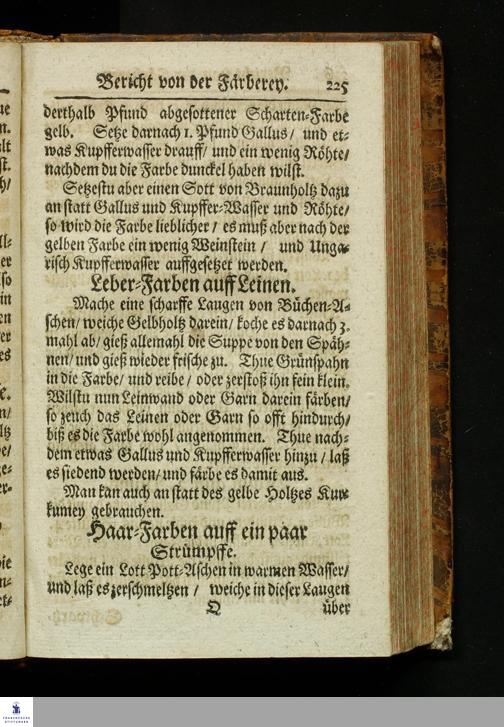 Bericht von der Färberey. 225
derthalb Pfund abgesottener Scharten-Farbe
gelb. Setze darnach 1. Pfund Gallus/ und et-
was Kupfferwasser drauff/ und ein wenig Röhte/
nachdem du die Farbe dunckel haben wilst.
Setzestu aber einen Sott von Braunholtz dazu
an statt Gallus und Kupffer-Wasser und Röhte/
so wird die Farbe lieblicher/ es muß aber nach der
gelben Farbe ein wenig Weinstein/ und Unga-
risch Kupfferwasser auffgesetzet werden.
Leber-Farben auff Leinen.
Mache eine scharffe Laugen von Büchen-A-
schen/ weiche Gelbholtz darein/ koche es darnach 3.
mahl ab/ gieß allemahl die Suppe von den Späh-
nen/ und gieß wieder frische zu. Thue Grünspahn
in die Farbe/ und reibe/ oder zerstoß ihn fein klein.
Wilstu nun Leinwand oder Garn darein färben/
so zeuch das Leinen oder Garn so offt hindurch/
biß es die Farbe wohl angenommen. Thue nach-
dem etwas Gallus und Kupfferwasser hinzu/ laß
es siedend werden/ und färbe es damit aus.
Man kan auch an statt des gelbe Holtzes Kur-
kumey gebrauchen.
Haar-Farben auff ein paar
Strümpffe.
Lege ein Lott Pott-Aschen in warmen Wasser/
und laß es zerschmeltzen/ weiche in dieser Laugen
Q über
FRANCKESCHE
STIFTUNGEN